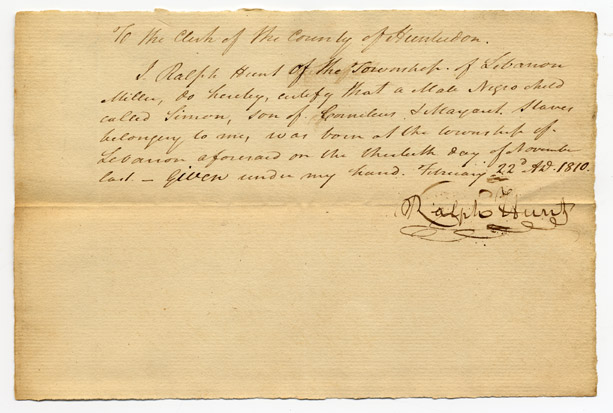 To the Clerk of the County of Hunterdon.
I, Ralph Hunt of the Township of Lebanon
Miller, do hereby, certify that a Male Negro child
called Simon, son of Cornelius & Margaret Slaves
belonging to me, was born at the township of
Lebanon aforesaid on the thirtieth day of November
last. — Given under my hand. February 22d AD. 1810.
Ralph Hunt